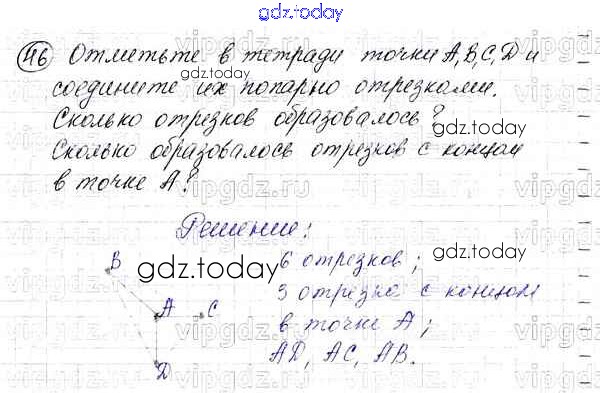 gdz.today
46 Отметьте в тетради точки A, B, C, D и
соедините их попарно отрезками.
gdz.today
Сколько отрезков образовалось?
gdz.today
Сколько образовалось отрезков с концом
в точке A?
vipgdz.ru
Решение:
B
6 отрезков;
gdz.today
gdz.today
3 отрезка с концом
A
C
в точке A;
D
AD, AC, AB.
vipgdz.ru
gdz.today